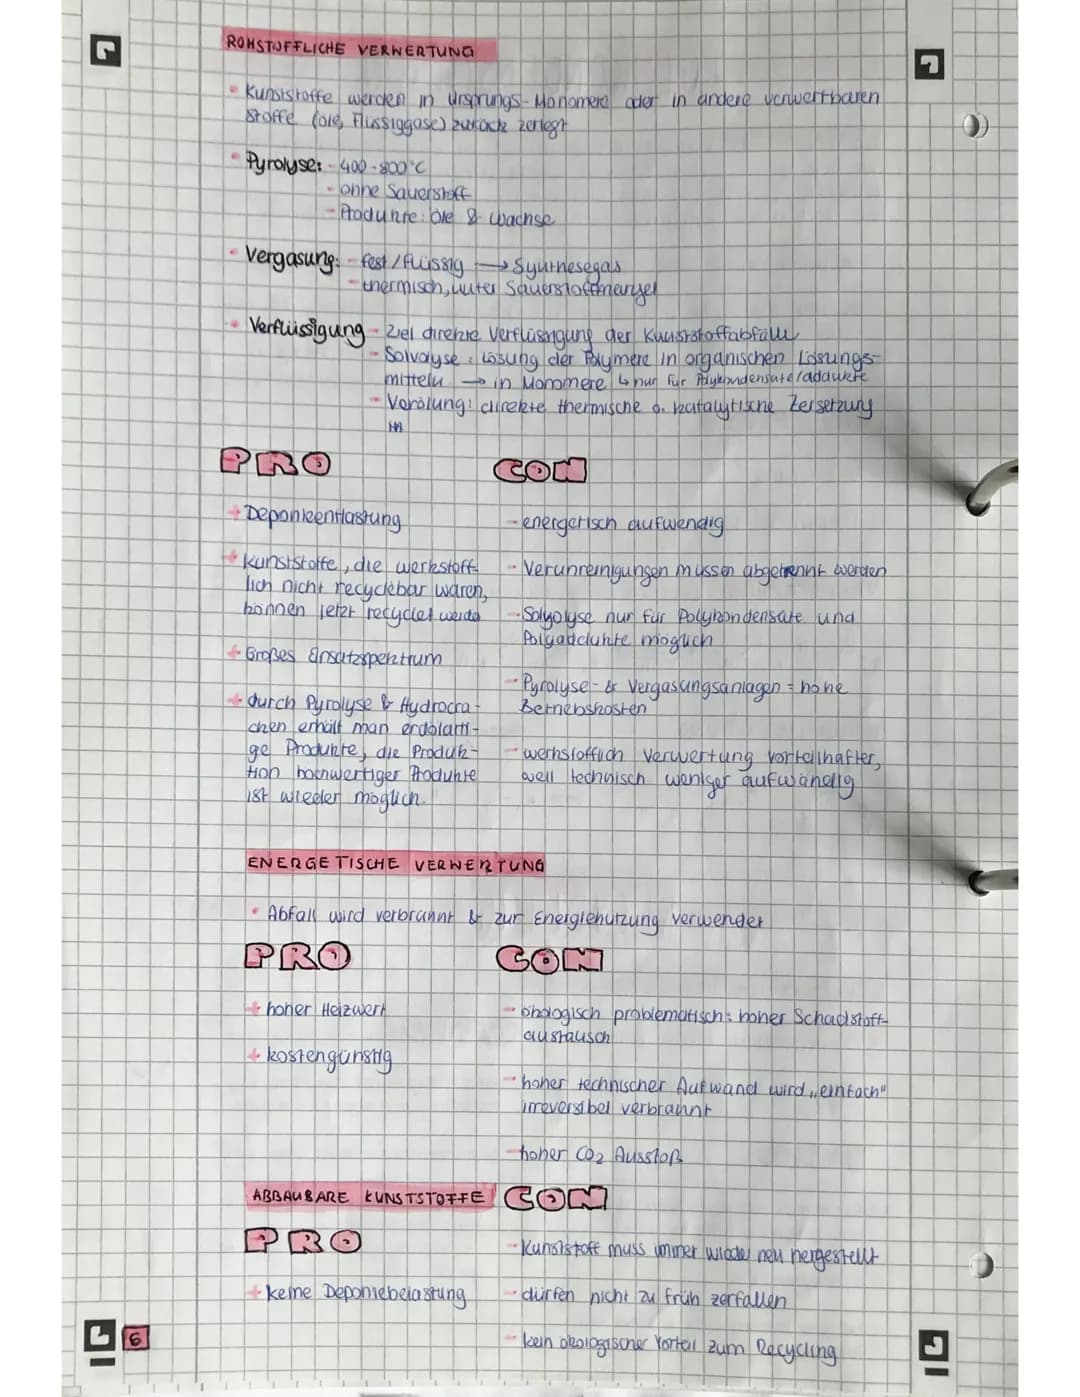 ROHSTOFFLICHE VERWERTUNG
• Kunststoffe werden in Ursprungs-Monomere oder in andere verwertbaren
Stoffe (Öle, Flüssiggase) zurück zerlegt
• Pyrolyse: - 400-800°C
- ohne Sauerstoff
- Produkte: Öle & Wachse
• Vergasung: - fest/flüssig → Synthesegas
- thermisch, unter Sauerstoffmangel
• Verflüssigung - Ziel direkte Verflüssigung der Kunststoffabfälle
- Solvolyse: Lösung der Polymere in organischen Lösungs-
mitteln → in Monomere ↳ nur für Polykondensate/addukte
- Verölung: direkte thermische o. katalytische Zersetzung
PRO
+ Deponieentlastung
+ Kunststoffe, die werkstoff-
lich nicht recyclebar waren,
können jetzt recyclet werden
+ Großes Einsatzspektrum
+ durch Pyrolyse & Hydrocra-
cken erhält man erdölarti-
ge Produkte, die Produk-
tion hochwertiger Produkte
ist wieder möglich.
CON
- energetisch aufwendig
- Verunreinigungen müssen abgetrennt werden
- Solyolyse nur für Polykondensate und
Polyaddukte möglich
- Pyrolyse- & Vergasungsanlagen = hohe
Betriebskosten
- werkstofflich Verwertung vorteilhafter,
weil technisch weniger aufwändig
ENERGETISCHE VERWERTUNG
• Abfall wird verbrannt & zur Energienutzung verwendet
PRO
+ hoher Heizwert
+ kostengünstig
CON
- ökologisch problematisch: hoher Schadstoff-
austausch
- hoher technischer Aufwand wird „einfach"
irreversibel verbrannt
- hoher CO₂ Ausstoß
ABBAUBARE KUNSTSTOFFE
PRO
+ keine Deponiebelastung
CON
- Kunststoff muss immer wieder neu hergestellt
- dürfen nicht zu früh zerfallen
- kein ökologischer Vorteil zum Recycling
6